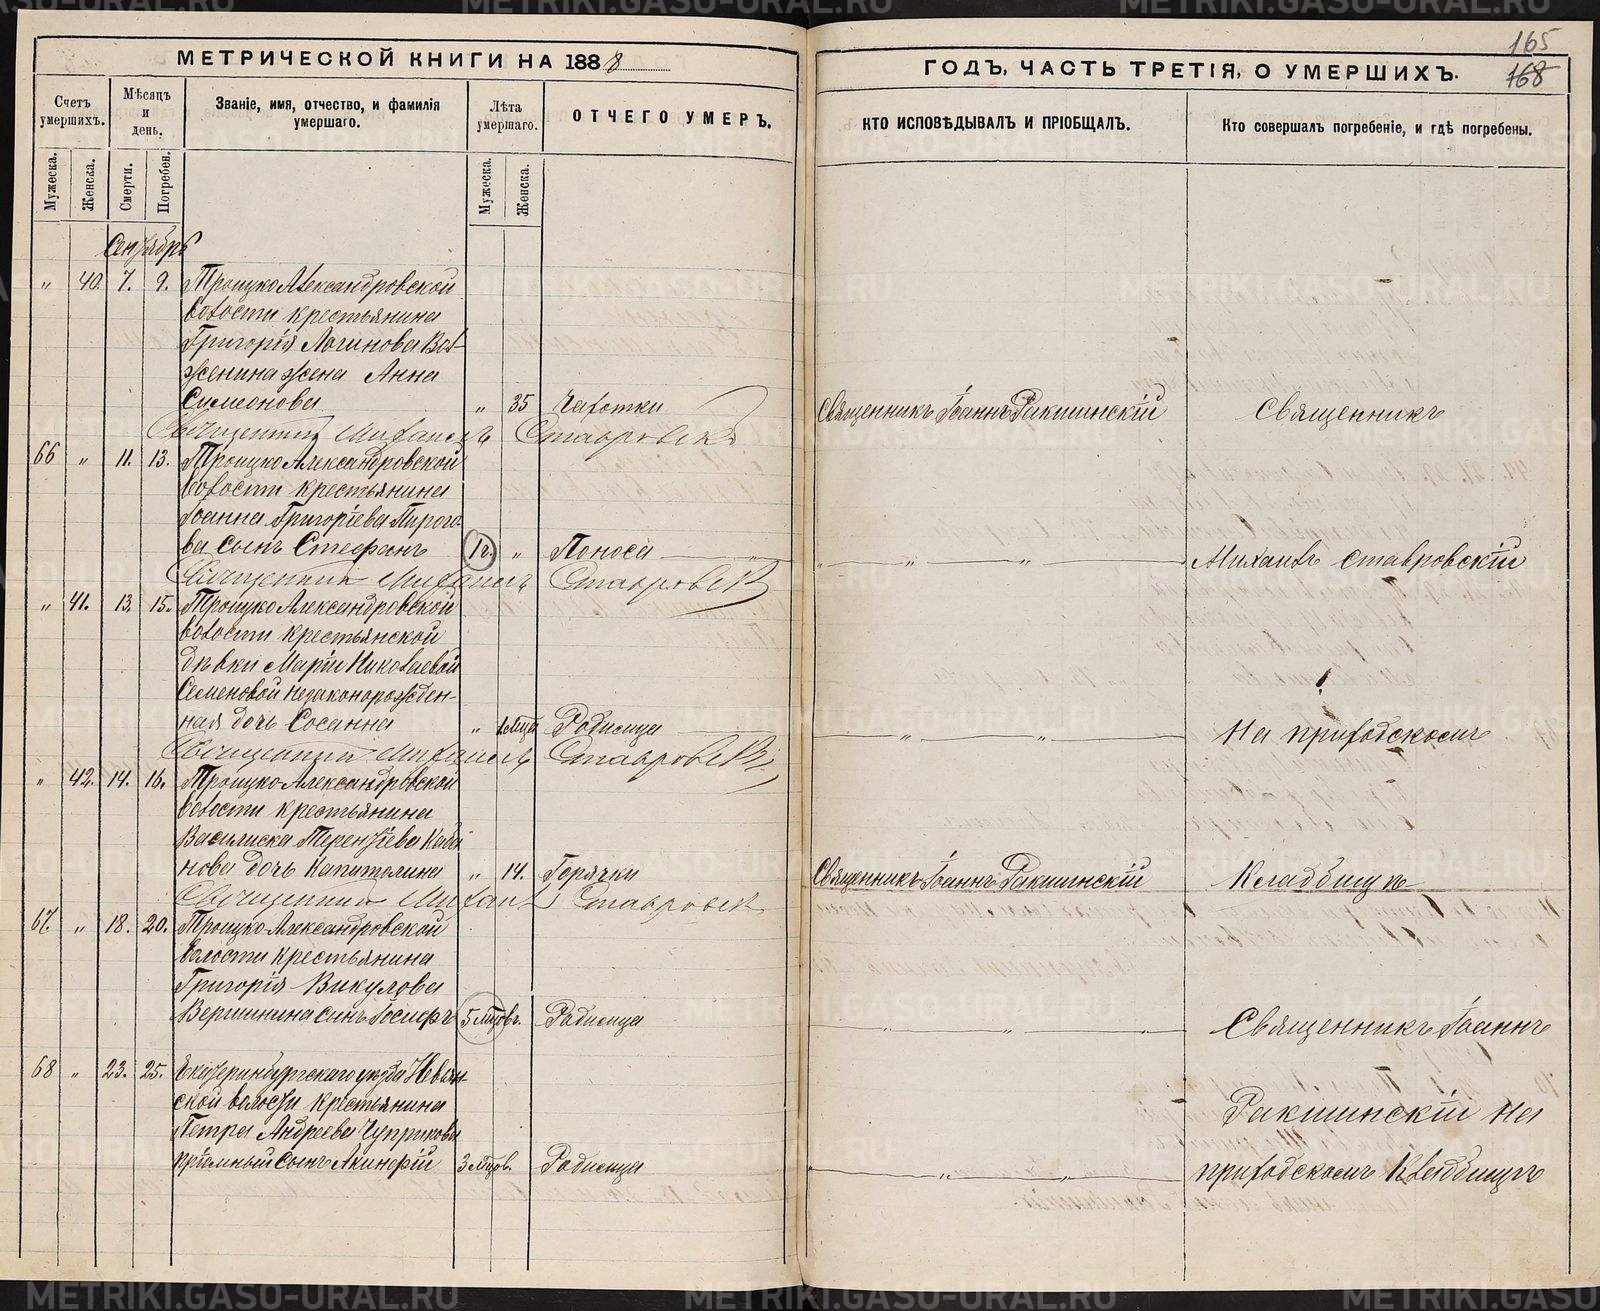 165
168
МЕТРИЧЕСКОЙ КНИГИ НА 1888
ГОДЪ, ЧАСТЬ ТРЕТІЯ, О УМЕРШИХЪ.
Счетъ умершихъ.
Мѣсяцъ и день.
Званіе, имя, отчество, и фамилія умершаго.
Лѣта умершаго.
ОТЧЕГО УМЕРЪ.
КТО ИСПОВѢДЫВАЛЪ И ПРІОБЩАЛЪ.
Кто совершалъ погребеніе, и гдѣ погребены.
Мужеска.
Женска.
Смерти.
Погребен.
Мужеска.
Женска.
Сентябрь
„ 40. 7. 9. Троицко Александровской
волости крестьянина
Григорія Логинова Вол-
женина жена Анна
Симеонова „ 35 Чахотки Священникъ Іоаннъ Ракшинскій Священникъ
Священник Михаилъ Ставровск
66 „ 11. 13. Троицко Александровской
волости крестьянина
Іоанна Григоріева Пирого-
ва сынъ Стефанъ 1 г. „ Поноса „ „ „ Михаилъ Ставровскій
Священник Михаилъ Ставровск
„ 41. 13. 15. Троицко Александровской
волости крестьянской
дѣвки Маріи Николаевой
Семеновой незаконорожден-
ная дочь Сосанна „ 1 мца Родимца „ „ На приходскомъ
Священник Михаилъ Ставровск
„ 42. 14. 16. Троицко Александровской
волости крестьянина
Василиска Терентіева Каба-
нова дочь Капитолина „ 14. Горячки Священникъ Іоаннъ Ракшинскій Кладбищѣ
Священник Михаил Ставровск
67. „ 18. 20. Троицко Александровской
волости крестьянина
Григорія Викулова
Вершинина сынъ Іосифъ 5 мцовъ. Родимца „ „ „ Священникъ Іоаннъ
68 „ 23. 25. Екатеринбургскаго уѣзда Невьян-
ской волости крестьянина
Петра Андреева Чуприкова Ракшинскій на
пріемный сынъ Акинфій 3 мцов. Родимца „ „ приходскомъ Кладбищѣ
METRIKI.GASO-URAL.RU